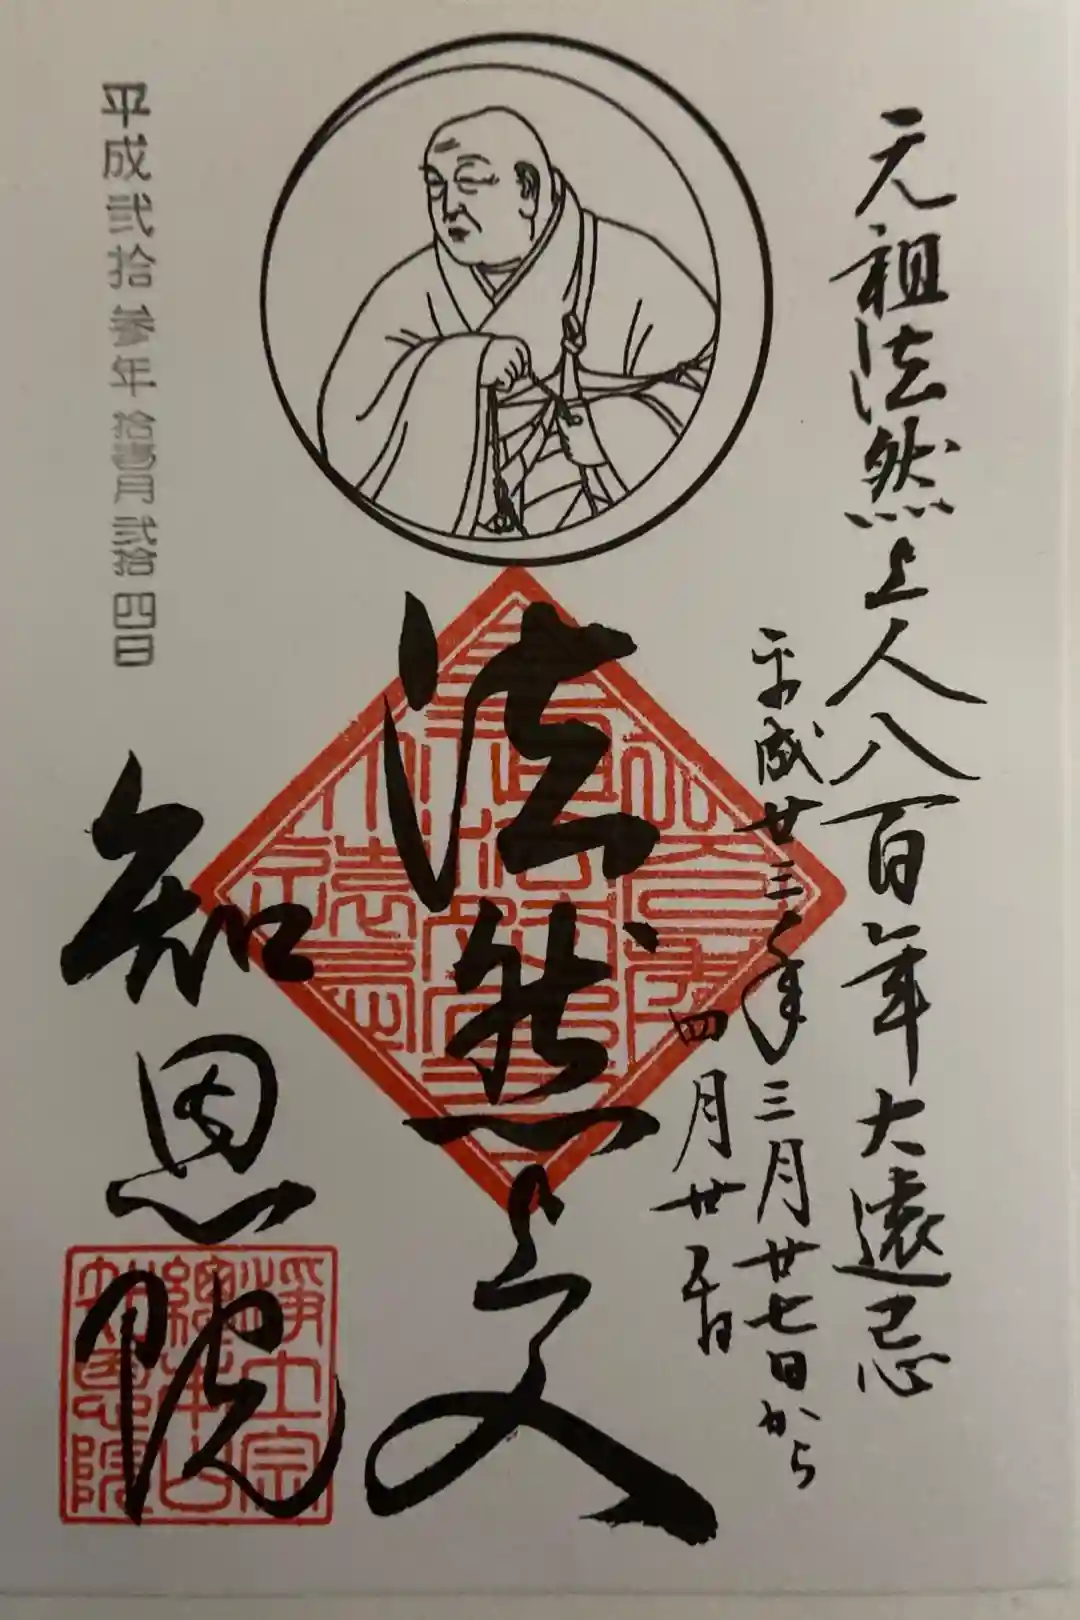 元祖法然上人八百年大遠忌
平成廿三年三月廿七日から
四月廿五日
法然上人
知恩院
平成弐拾参年拾壹月弐拾四日
浄土宗
總本山
知恩院